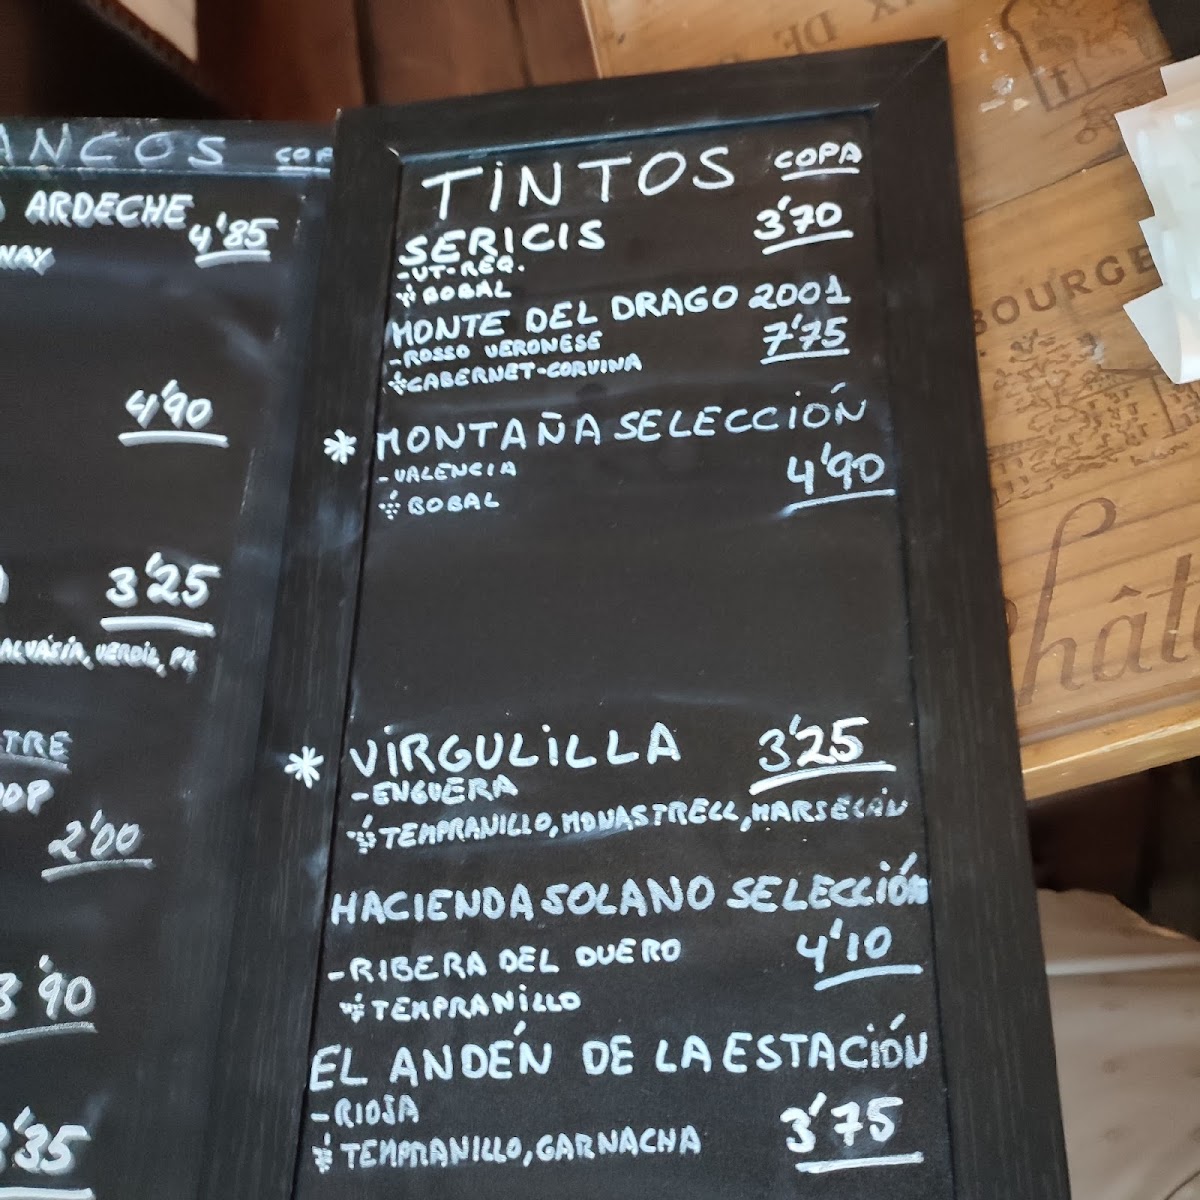 ANCOS COP
ARDECHE
4'85
NAY
4'90
3'25
ALVASÍA, VERDIL, PX
TRE
DOP
2'00
3'90
3'35
TINTOS COPA
SERICIS 3'70
-UT-REQ.
BOBAL
MONTE DEL DRAGO 2001
-ROSSO VERONESE 7'75
CABERNET-CORVINA
* MONTAÑA SELECCIÓN
-VALENCIA 4'90
BOBAL
* VIRGULILLA 3'25
-ENGUERA
TEMPRANILLO, MONASTRELL, MARSELÁN
HACIENDA SOLANO SELECCIÓN
-RIBERA DEL DUERO 4'10
TEMPRANILLO
EL ANDÉN DE LA ESTACIÓN
-RIOJA 3'75
TEMPRANILLO, GARNACHA
DE
BOURGE
Chât